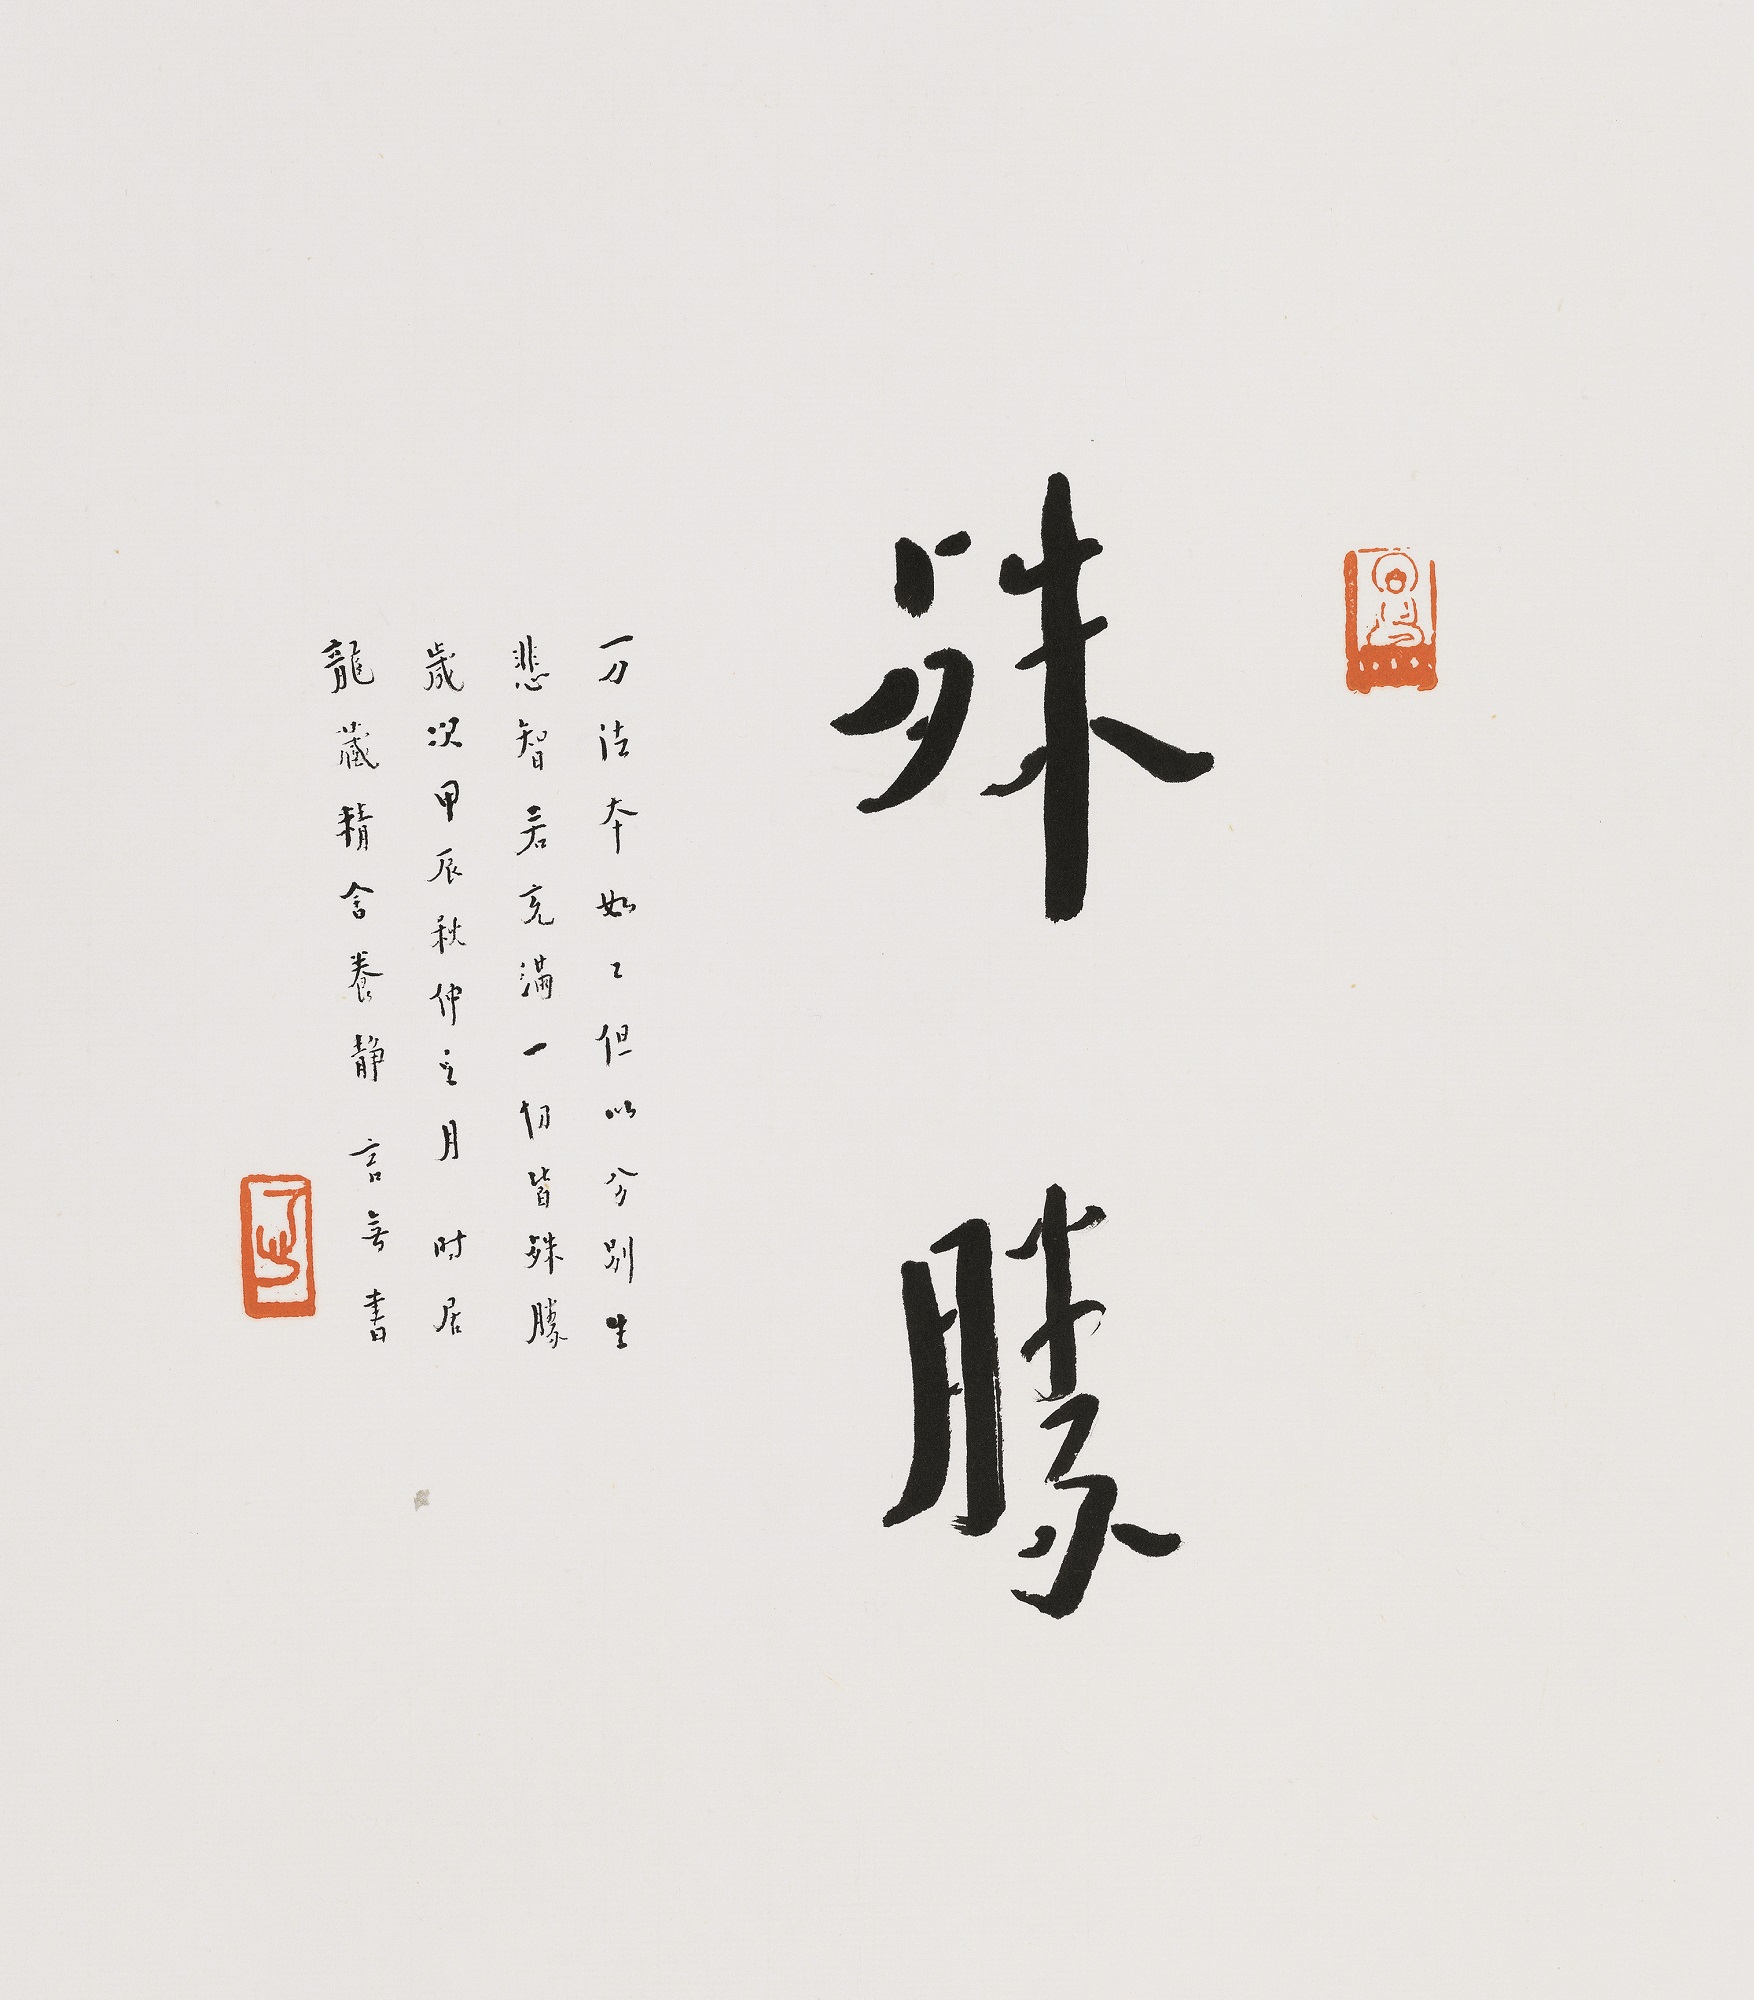 殊勝
万法本如〻但以分別生
悲智若充滿一切皆殊勝
歲次甲辰秋仲之月時居
龍藏精舍養靜言無書